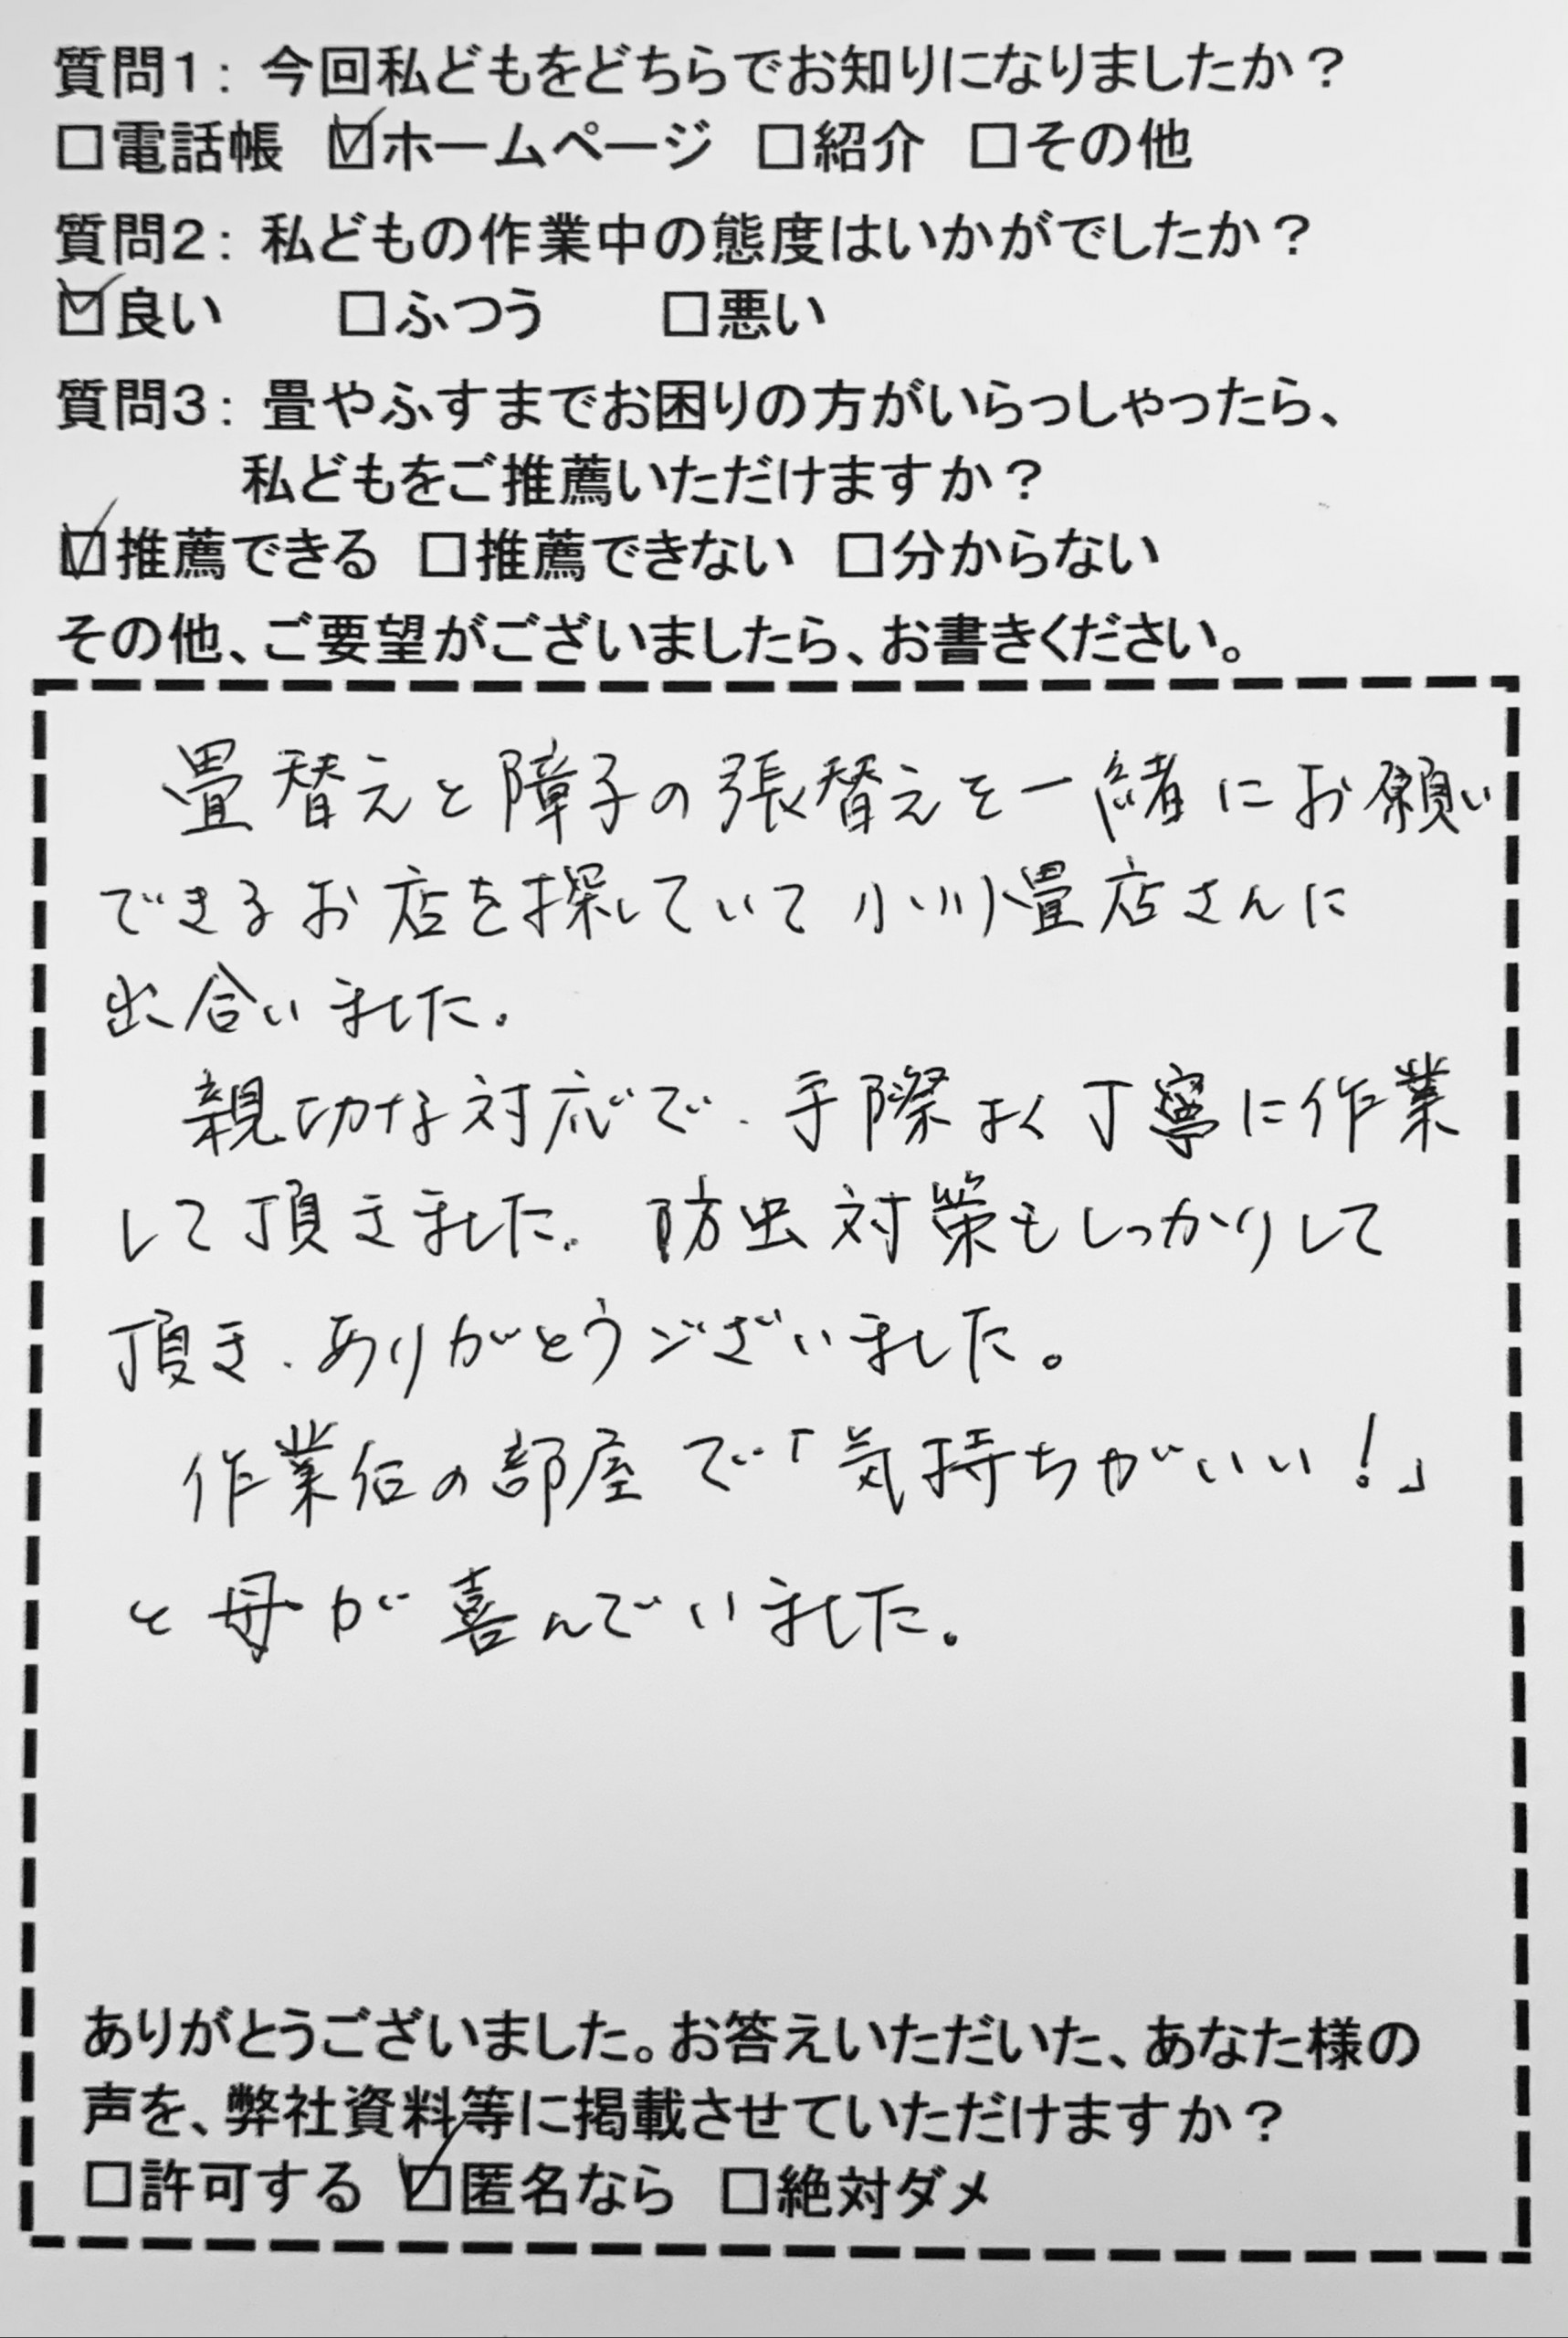 質問1：今回私どもをどちらでお知りになりましたか？
□電話帳 ☑ホームページ □紹介 □その他
質問2：私どもの作業中の態度はいかがでしたか？
☑良い □ふつう □悪い
質問3：畳やふすまでお困りの方がいらっしゃったら、
私どもをご推薦いただけますか？
☑推薦できる □推薦できない □分からない
その他、ご要望がございましたら、お書きください。
畳替えと障子の張替えを一緒にお願い
できるお店を探していて小川畳店さんに
出合いました。
親切な対応で、手際よく丁寧に作業
して頂きました。防虫対策もしっかりして
頂き、ありがとうございました。
作業后の部屋で「気持ちがいい！」
と母が喜んでいました。
ありがとうございました。お答えいただいた、あなた様の
声を、弊社資料等に掲載させていただけますか？
□許可する ☑匿名なら □絶対ダメ